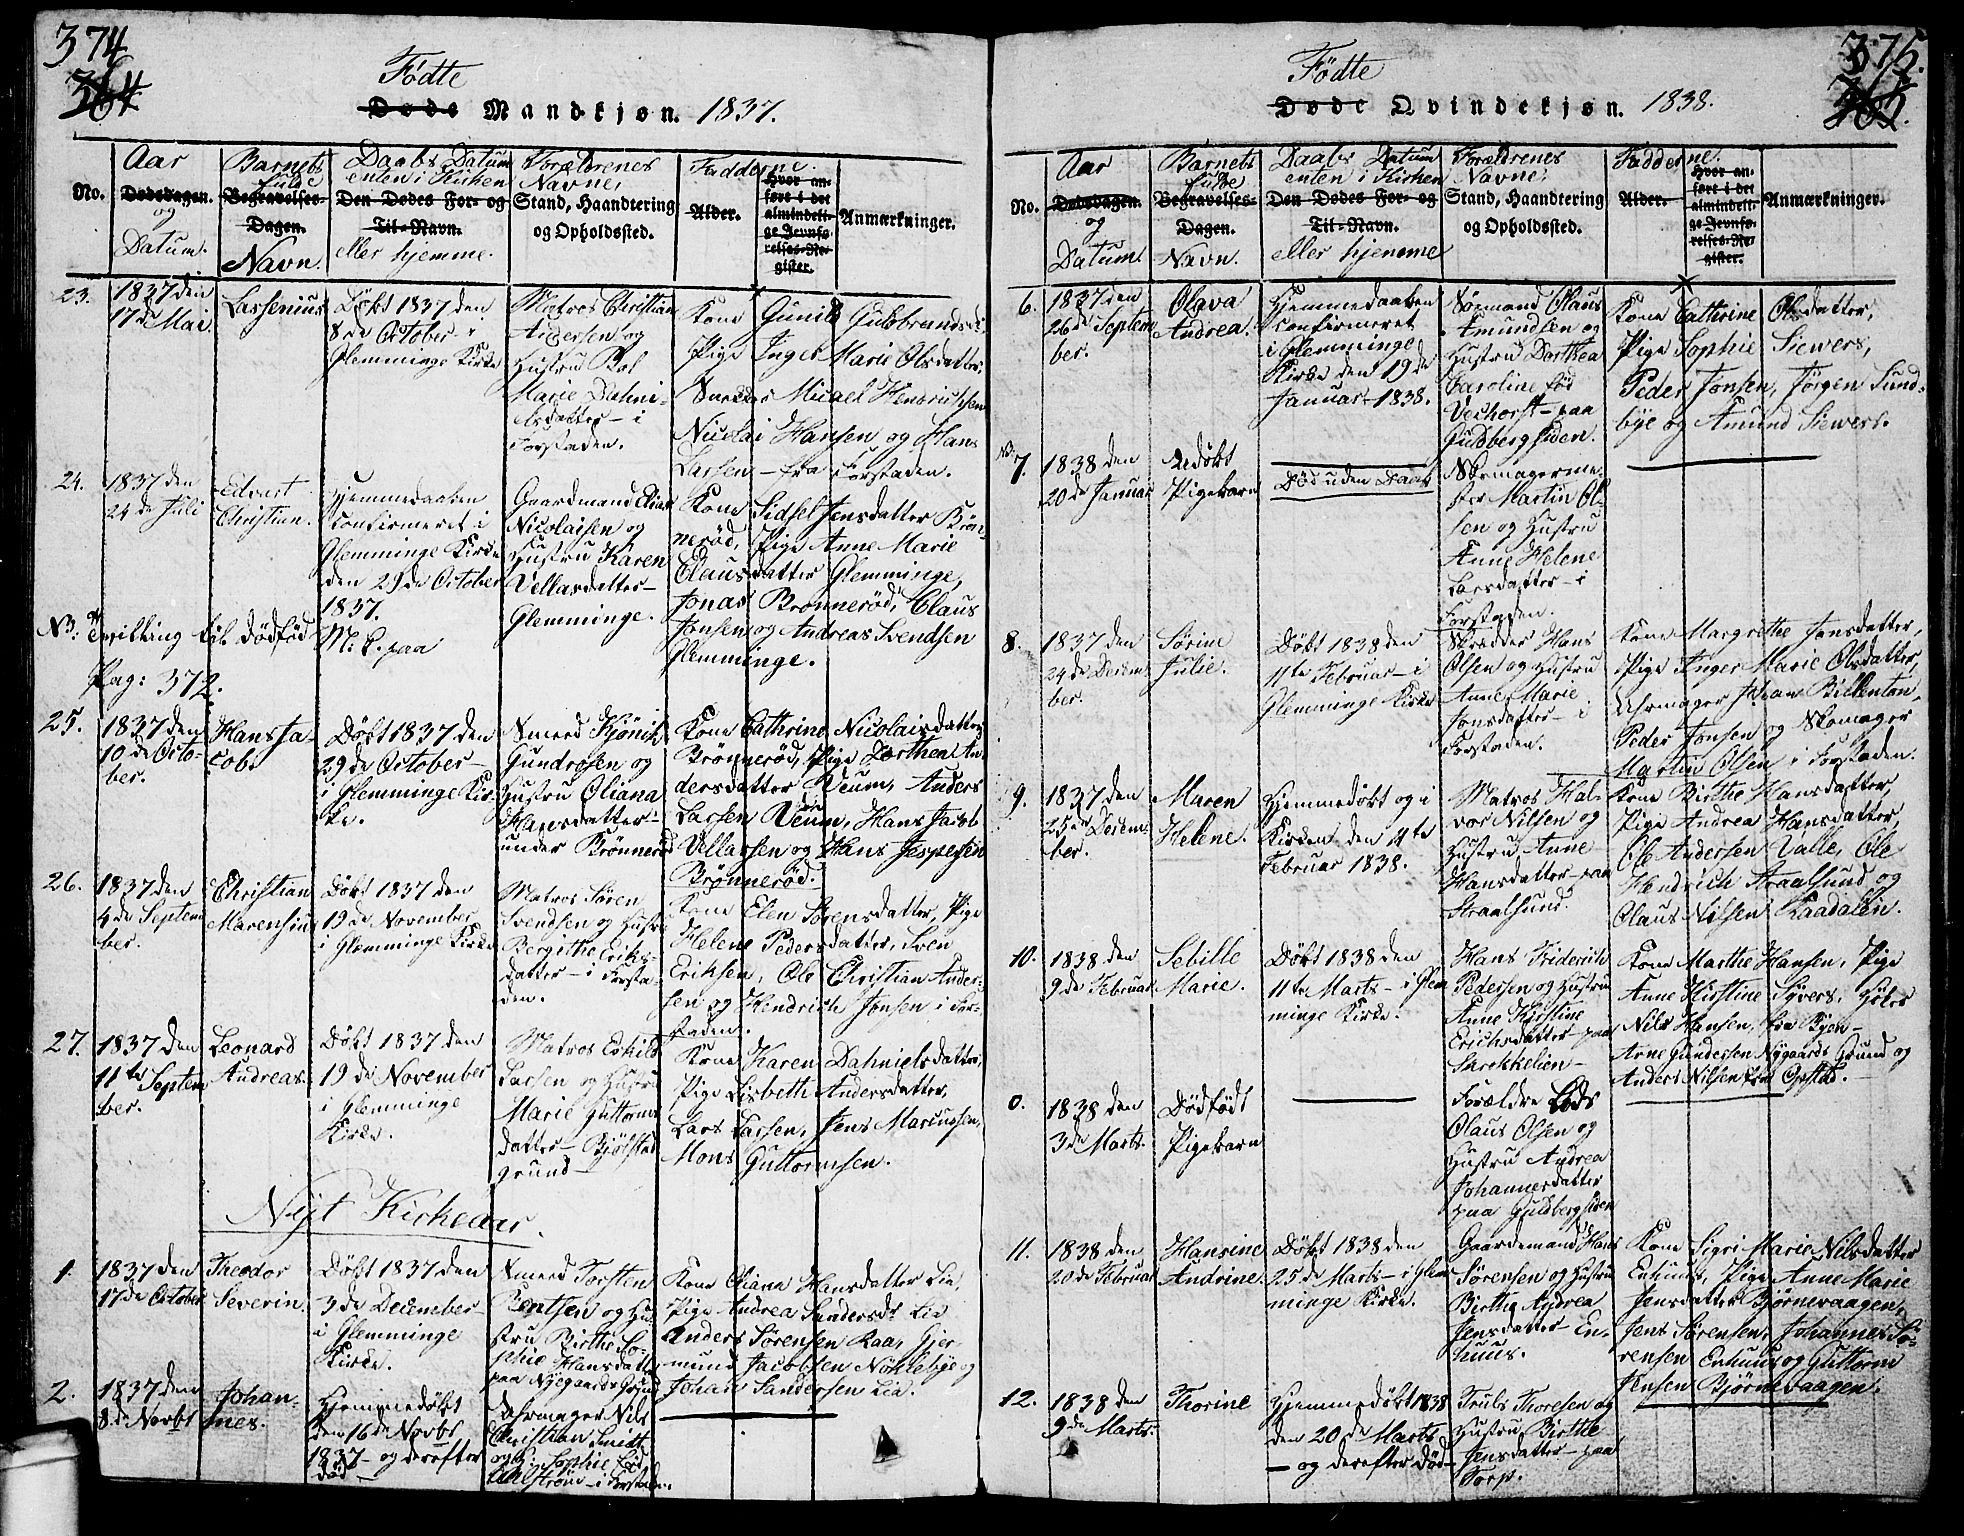 374
364
Födte
Døde Mandkjøn. 1837.
No.
Aar
Dødsdagen.
og
Datum.
Barnets
fulde
Begravelses-
Dagen.
Navn.
Daabs Datum
enten i Kirken
Den Dødes For- og
Til-Navn.
eller hjemme.
Forældrenes
Navne,
Stand, Haandtering
og Opholdssted.
Fadderne.
Alder.
Hvor an-
ført i det
almindeli-
ge Jevnfø-
relses-Re-
gister.
Anmærkninger.
23.
1837 den
17de Mai
Lassenius
Döbt 1837 den
8de October i
Glemminge Kirke
Matros Christian
Andersen og
Hustru Bol
Marie Dahni-
elsdatter i
Forstaden.
Kone Gunild Gulbrandsd.
Pige Inger Marie Olsdatter,
Micael Hendrichsen
Nicolai Hansen og Hans
Larsen – fra Forstaden.
24.
1837 den
24de Juli
Edvart
Christian.
Hjemmedaaben
confirmeret i
Glemminge Kirke
den 29de October
1837.
Gaardmand Elias
Nicolaisen og
Hustru Karen
Vellasdatter –
Glemminge.
Kone Sidsel Jensdatter Brön-
nerød, Pige Anne Marie
Clausdatter Glemminge,
Jonas Brønnerød, Claus
Jonsen og Andreas Svendsen
Glemminge.
NB: Tvilling til Dødfød
M: K. paa
Pag: 372.
25.
1837 den
10de Octo-
ber.
Hans Ja-
cob.
Döbt 1837 den
29de October –
i Glemminge Kir-
ke.
Smed Kjönik
Gundresen og
Hustru Oliana
Hansdatter
under Brönneröd
Kone Cathrine Nicolaisdatter
Brönneröd, Pige Dorthea An-
dersdatter Veum, Anders
Larsen Veum, Hans Jacob
Vellassen og Hans Jespersen
Brønnerød.
26.
1837 den
4de Septem
ber.
Christian
Marensius
Döbt 1837 den
19de November
i Glemminge Kirke
Matros Sören
Svendsen og Hustru
Bergithe Eriks-
datter – i Forsta-
den.
Kone Elen Sörensdatter, Pige
Helene Pedersdatter, Sven
Eriksen, Ole Christian Ander-
sen og Hendrich Jonsen i For-
staden.
27.
1837 den
11te Septem
ber.
Leonard
Andreas.
Döbt 1837 den
19de November
i Glemminge
Kirke.
Matros Eskild
Larsen og Hustru
Marie Guttorms
datter – Bjölstad
grund –
Kone Karen Dahnielsdatter,
Pige Lisbeth Andersdatter,
Lars Larsen, Jens Marcussen,
Mons Guttormsen.
Nyt Kirkeaar.
1.
1837 den
17de October
Theodor
Severin.
Döbt 1837 den
3de December
i Glemminge
Kirke.
Smed Torsten
Bentsen og Hu-
stru Birthe So-
phie Hansdatter
paa Nygaards Grund
Kone Oliana Hansdatter Lie,
Pige Andrea Sandersdr Lie
Anders Sörensen Raa, Gjer
mund Jacobsen Nöklebye og
Johan Sandersen Lie.
2.
1837 den
8de Novbr
Johan-
nes.
Hjemmedöbt
den 16de Novbr
1837 – og derefter
död
Uhrmager Nils
Christian Smidt
og H: Sophie föd
Ahlström – i Forstaden.
375.
365.
Födte
Døde Qvindekjøn. 1838.
No.
Aar
Dødsdagen.
og
Datum
Barnets
fulde
Begravelses-
Dagen.
Navn.
Daabs Datum
enten i Kirken
Den Dødes For- og
Til-Navn.
eller hjemme
Forældrenes
Navne;
Stand, Haandtering
og Opholdssted.
Fadderne.
Alder.
Hvor an-
ført i det
almindeli-
ge Jevnfø-
relses-Re-
gister.
Anmærkninger.
6.
1837 den
26de Septem
ber.
Olava
Andrea.
Hjemmedaaben
confirmeret
i Glemminge
Kirke den 19de
Januar 1838.
Sömand Olaus
Amundsen og
Hustru Dorthea
Caroline föd
Vechorst – paa
Guldbergsiden.
Kone Cathrine Olsdatter,
Pige Sophie Siewers,
Peder Jonsen, Jörgen Sund-
bye og Amund Siewers.
7.
1838 den
20de Januar
Udöbt
Pigebarn
Död uden Daab
Skomagerme-
ster Martin Ol-
sen og Hustru
Anne Helene
Larsdatter – i
Forstaden.
8.
1837 den
24de Decem
ber.
Sörine
Julie.
Döbt 1838 den
11te Februar – i
Glemminge Kirke
Skredder Hans
Olsen og Hustru
Anne Marie
Jonsdatter – i
Forstaden.
Kone Margrethe Jensdatter,
Pige Inger Marie Olsdatter,
Uhrmager Johan Billenton,
Peder Jonsen og Skomager
Martin Olsen i Forstaden.
9.
1837 den
25de Decem
ber.
Maren
Helene.
Hjemmedöbt og i
Kirken den 11te
Februar 1838.
Matros Hal-
vor Nilsen og
Hustru Anne
Hansdatter – paa
Straalsund.
Kone Birthe Hansdatter,
Pige Andrea Hansdatter,
Ole Andersen Valle, Ole
Hendrich Straalsund og
Claus Nilsen Kaadalen.
10.
1838 den
9de Februar
Sebille
Marie.
Döbt 1838 den
11te Marts – i Glem
minge Kirke.
Hans Friderich
Pedersen og Hustru
Anne Kirstine
Erichsdatter – paa
Skrekkelien –
Kone Marthe Hansen, Pige
Anne Kirstine Syvers,
Nils Hansen, fra Byen –
Arne Gundersen Nygaards Grund og
Anders Nilsen fra Opstad. –
0.
1838 den
3de Marts
Dödfödt
Pigebarn
Forældre Lods
Olaus Olsen og
Hustru Andrea
Johannesdatter
paa Guldbergsiden
11.
1838 den
20de Februar
Hansine
Andrine.
Döbt 1838 den
25de Marts – i Glem
minge Kirke.
Gaardemand Hans
Sörensen og Hustru
Birthe Andrea
Jensdatter – En-
huus.
Kone Sigri Marie Nilsdatter
Enhuus, Pige Anne Marie
Jensdatter Bjørnevaagen,
Jens Sørensen, Johannes Sö-
rensen Enhuus og Guttorm
Jensen Bjørnevaagen.
12.
1838 den
9de Marts.
Thorine
Hjemmedöbt 1838
den 20de Marts
– og derefter död –
Truls Thoresen og
Hustru Birthe
Jensdatter – paa
Torp.